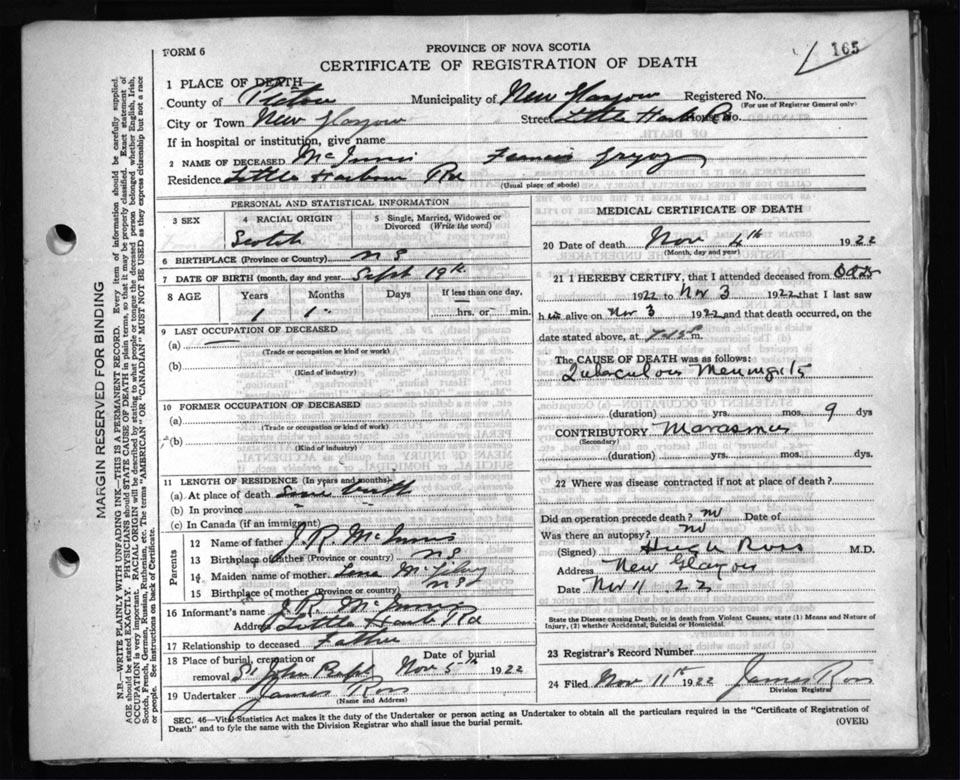 165
FORM 6
PROVINCE OF NOVA SCOTIA
CERTIFICATE OF REGISTRATION OF DEATH
1 PLACE OF DEATH
County of Pictou Municipality of New Glasgow Registered No.
(For use of Registrar General only)
City or Town New Glasgow Street Little Harb Rd House No.
If in hospital or institution, give name
2 NAME OF DECEASED McInnis Francis
Residence Little Harbour Rd
(Usual place of abode)
PERSONAL AND STATISTICAL INFORMATION
3 SEX
4 RACIAL ORIGIN
Scotch
5 Single, Married, Widowed or Divorced (Write the word)
6 BIRTHPLACE (Province or Country) N S
7 DATE OF BIRTH (month, day and year) Sept 19th
8 AGE Years Months Days If less than one day,
1 1 hrs. or min.
9 LAST OCCUPATION OF DECEASED
(a)
(Trade or occupation or kind or work)
(b)
(Kind of industry)
10 FORMER OCCUPATION OF DECEASED
(a)
(Trade or occupation or kind or work)
(b)
(Kind of industry)
11 LENGTH OF RESIDENCE (In years and months)
(a) At place of death Since birth
(b) In province
(c) In Canada (if an immigrant)
Parents
12 Name of father J. R. McInnis
13 Birthplace of father (Province or country) N S
14 Maiden name of mother Lena
15 Birthplace of mother (Province or country) N S
16 Informant's name J. R. McInnis
Address Little Harb Rd
17 Relationship to deceased Father
18 Place of burial, cremation or removal St John Bapt
Date of burial Nov 5th 1922
19 Undertaker James Ross
(Name and Address)
MEDICAL CERTIFICATE OF DEATH
20 Date of death Nov 4th 1922
(Month, day and year)
21 I HEREBY CERTIFY, that I attended deceased from
1922 to Nov 3 1922 that I last saw
h im alive on Nov 3 1922 and that death occurred, on the
date stated above, at m.
The CAUSE OF DEATH was as follows:
Tuberculous Meningitis
(duration) yrs. mos. 9 dys
CONTRIBUTORY Marasmus
(Secondary)
(duration) yrs. mos. dys.
22 Where was disease contracted if not at place of death?
Did an operation precede death? no Date of
Was there an autopsy? no
(Signed) Hugh Ross M.D.
Address New Glasgow
Date Nov 11 22
State the Disease causing Death, or in death from Violent Causes, state (1) Means and Nature of
Injury, (2) whether Accidental, Suicidal or Homicidal.
23 Registrar's Record Number
24 Filed Nov 11th 1922 James Ross
Division Registrar
SEC. 46—Vital Statistics Act makes it duty of the Undertaker or person acting as Undertaker to obtain all the particulars required in the "Certificate of Registration of
Death" and to fyle the same with the Division Registrar who shall issue the burial permit.
(OVER)
MARGIN RESERVED FOR BINDING
N.B.—WRITE PLAINLY WITH UNFADING INK—THIS IS A PERMANENT RECORD. Every item of information should be carefully supplied.
AGE should be stated EXACTLY. PHYSICIANS should STATE CAUSE OF DEATH in plain terms, so that it may be properly classified. Exact statement of
OCCUPATION is very important. RACIAL ORIGIN will be described by stating to what people or tongue the deceased person belonged whether English, Irish,
Scotch, French, German, Russian, Ruthenian, etc. The terms "AMERICAN" OR "CANADIAN" MUST NOT BE USED as they express citizenship but not a race
or people. See instructions on back of Certificate.